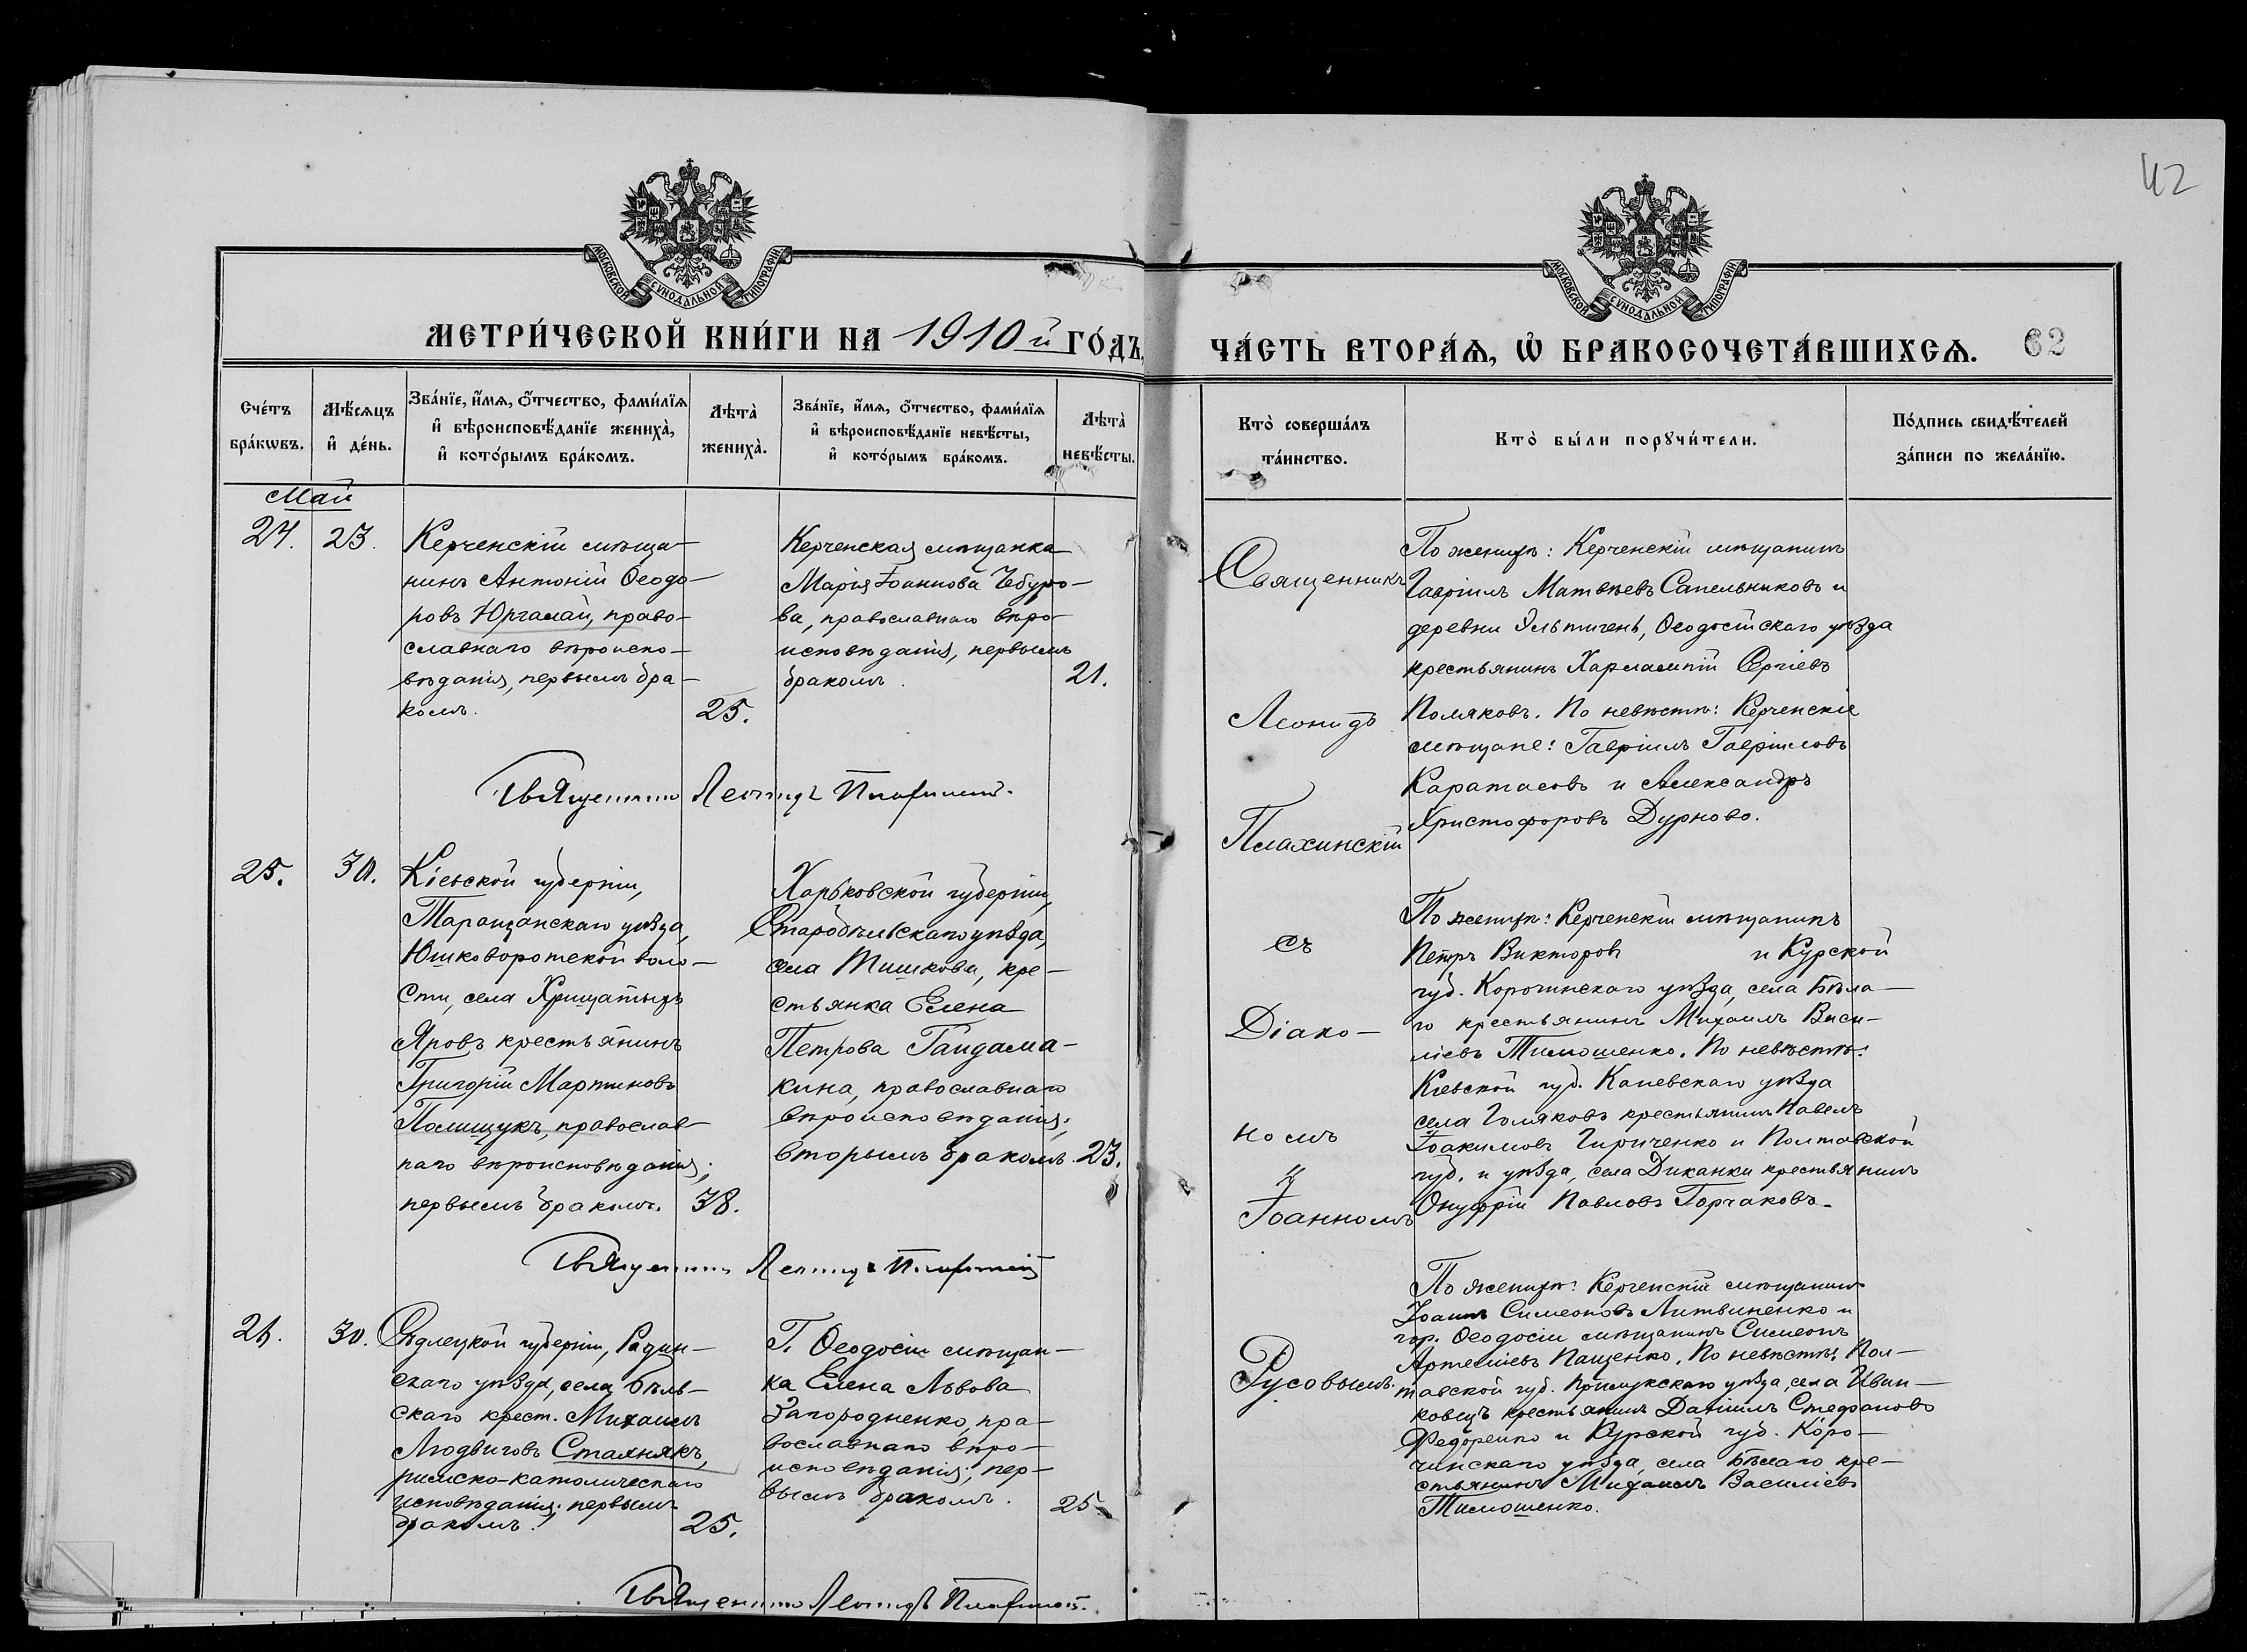 42
МОСКОВСКОЙ СѴНОДАЛЬНОЙ ТИПОГРАФІИ
МОСКОВСКОЙ СѴНОДАЛЬНОЙ ТИПОГРАФІИ
МЕТРИ́ЧЕСКОЙ КНИ́ГИ НА 1910й ГО́ДЪ,
ЧА́СТЬ ВТОРА́Ѧ, Ѡ҆ БРАКОСОЧЕТА́ВШИХСѦ. 62
Сче́тъ бра́кѡвъ.
Мѣ́сѧцъ и҆ де́нь.
Зва́нїе, и҆́мѧ, ѻ҆́тчество, фами́лїѧ и҆ вѣроисповѣ́данїе жениха̀, и҆ кото́рымъ бра́комъ.
Лѣта̀ жениха̀.
Зва́нїе, и҆́мѧ, ѻ҆́тчество, фами́лїѧ и҆ вѣроисповѣ́данїе невѣ́сты, и҆ кото́рымъ бра́комъ.
Лѣта̀ невѣ́сты.
Кто̀ соверша́лъ та́инство.
Кто̀ бы́ли порꙋчи́тели.
По́дпись свидѣ́телей за́писи по жела́нїю.
Май
24.
23.
Керченскій мѣща-
нинъ Антоній Ѳеодо-
ровъ Юргалай, право-
славнаго вѣроиспо-
вѣданія, первымъ бра-
комъ.
25.
Керченская мѣщанка
Марія Іоаннова Чебуро-
ва, православнаго вѣро-
исповѣданія, первымъ
бракомъ.
21.
Священникъ
Леонидъ
Плахинскій
По женихѣ: Керченскій мѣщанинъ
Гавріилъ Матвѣевъ Сапельниковъ и
деревни Эльтигенъ, Ѳеодосійскаго уѣзда
крестьянинъ Харлампій Сергіевъ
Поляковъ. По невѣстѣ: Керченскіе
мѣщане: Гавріилъ Гавріиловъ
Каратасовъ и Александръ
Христофоровъ Дурново.
Священникъ Леонидъ Плахинскій.
25.
30.
Кіевской губерніи,
Таращанскаго уѣзда,
Юшковоротской воло-
сти, села Хрищатыхъ
Яровъ крестьянинъ
Григорій Мартиновъ
Полищукъ, православ-
наго вѣроисповѣданія;
первымъ бракомъ.
38.
Харьковской губерніи,
Старобѣльскаго уѣзда,
села Тишкова, кре-
стьянка Елена
Петрова Гайдама-
кина, православнаго
вѣроисповѣданія;
вторымъ бракомъ.
23.
съ
Діако-
номъ
Іоанномъ
По женихѣ: Керченскій мѣщанинъ
Петръ Викторовъ и Курской
губ. Корочинскаго уѣзда, села Бѣла-
го крестьянинъ Михаилъ Васи-
ліевъ Тимошенко. По невѣстѣ:
Кіевской губ. Каневскаго уѣзда
села Голяковъ крестьянинъ Павелъ
Іоакимовъ Гириченко и Полтавской
губ. и уѣзда, села Диканки крестьянинъ
Онуфрій Павловъ Горчаковъ.
Священникъ Леонидъ Плахинскій
26.
30.
Сѣдлецкой губерніи, Радин-
скаго уѣзда, села Бѣль-
скаго крест. Михаилъ
Людвиговъ Сталнякъ,
римско-католическаго
исповѣданія; первымъ
бракомъ.
25.
Г. Ѳеодосіи мѣщан-
ка Елена Львова
Загородненко, пра-
вославнаго вѣро-
исповѣданія; пер-
вымъ бракомъ.
25.
Русовымъ.
По женихѣ: Керченскій мѣщанинъ
Іоаннъ Симеоновъ Литвиненко и
гор. Ѳеодосіи мѣщанинъ Симеонъ
Артеміевъ Пащенко. По невѣстѣ: Пол-
тавской губ. Прилукскаго уѣзда, села Иван-
ковецъ крестьянинъ Даніилъ Стефановъ
Федоренко и Курской губ. Коро-
чинскаго уѣзда, села Бѣлаго кре-
стьянинъ Михаилъ Василіевъ
Тимошенко.
Священникъ Леонидъ Плахинскій.